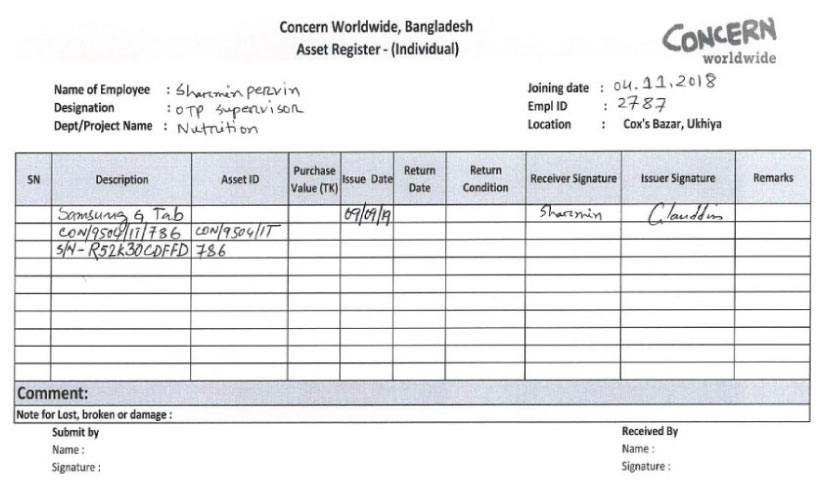 Concern Worldwide, Bangladesh
Asset Register - (Individual)
CONCERN
worldwide
Name of Employee : Sharmin pervin
Designation : OTP Supervisor
Dept/Project Name : Nutrition
Joining date : 04.11.2018
Empl ID : 2787
Location : Cox's Bazar, Ukhiya
SN Description Asset ID Purchase Value (TK) Issue Date Return Date Return Condition Receiver Signature Issuer Signature Remarks
Samsung Tab 09/09/19 Sharmin
CON/9504/IT/786 CON/9504/IT
S/N- R52K30CDFFD 786
Comment:
Note for Lost, broken or damage :
Submit by Received By
Name : Name :
Signature : Signature :